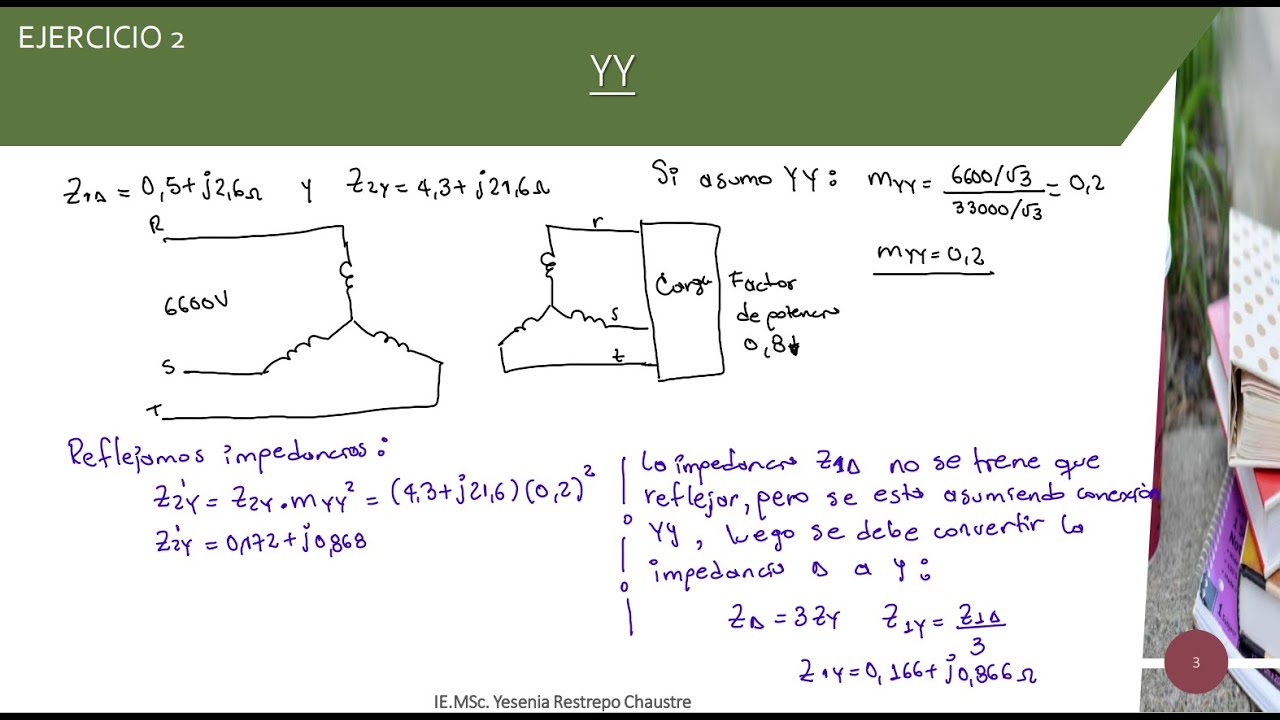 EJERCICIO 2
YY
Z1Δ = 0,5 + j2,6Ω y Z2Y = 4,3 + j21,6Ω
Si asumo YY: mYY = (6600/√3)/(33000/√3) = 0,2
mYY = 0,2
R
6600V
S
T
r
s
t
Carga
Factor
de potencia
0,8
Reflejamos impedancias:
Z'2Y = Z2Y · mYY² = (4,3 + j21,6)(0,2)²
Z'2Y = 0,172 + j0,868
La impedancia Z1Δ no se tiene que
reflejar, pero se está asumiendo conexión
Yy, luego se debe convertir la
impedancia Δ a Y:
ZΔ = 3ZY Z1Y = Z1Δ/3
Z1Y = 0,166 + j0,866Ω
3
IE.MSc. Yesenia Restrepo Chaustre